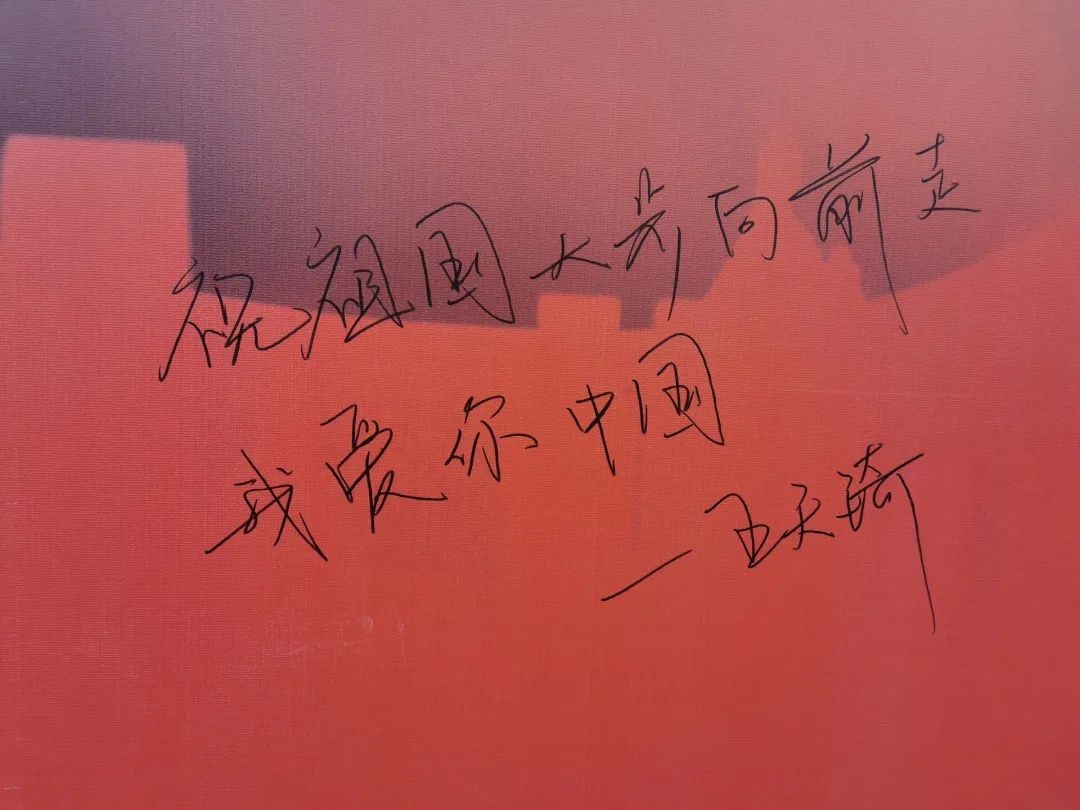 祝祖国大步向前走
我爱你中国
—王天琦